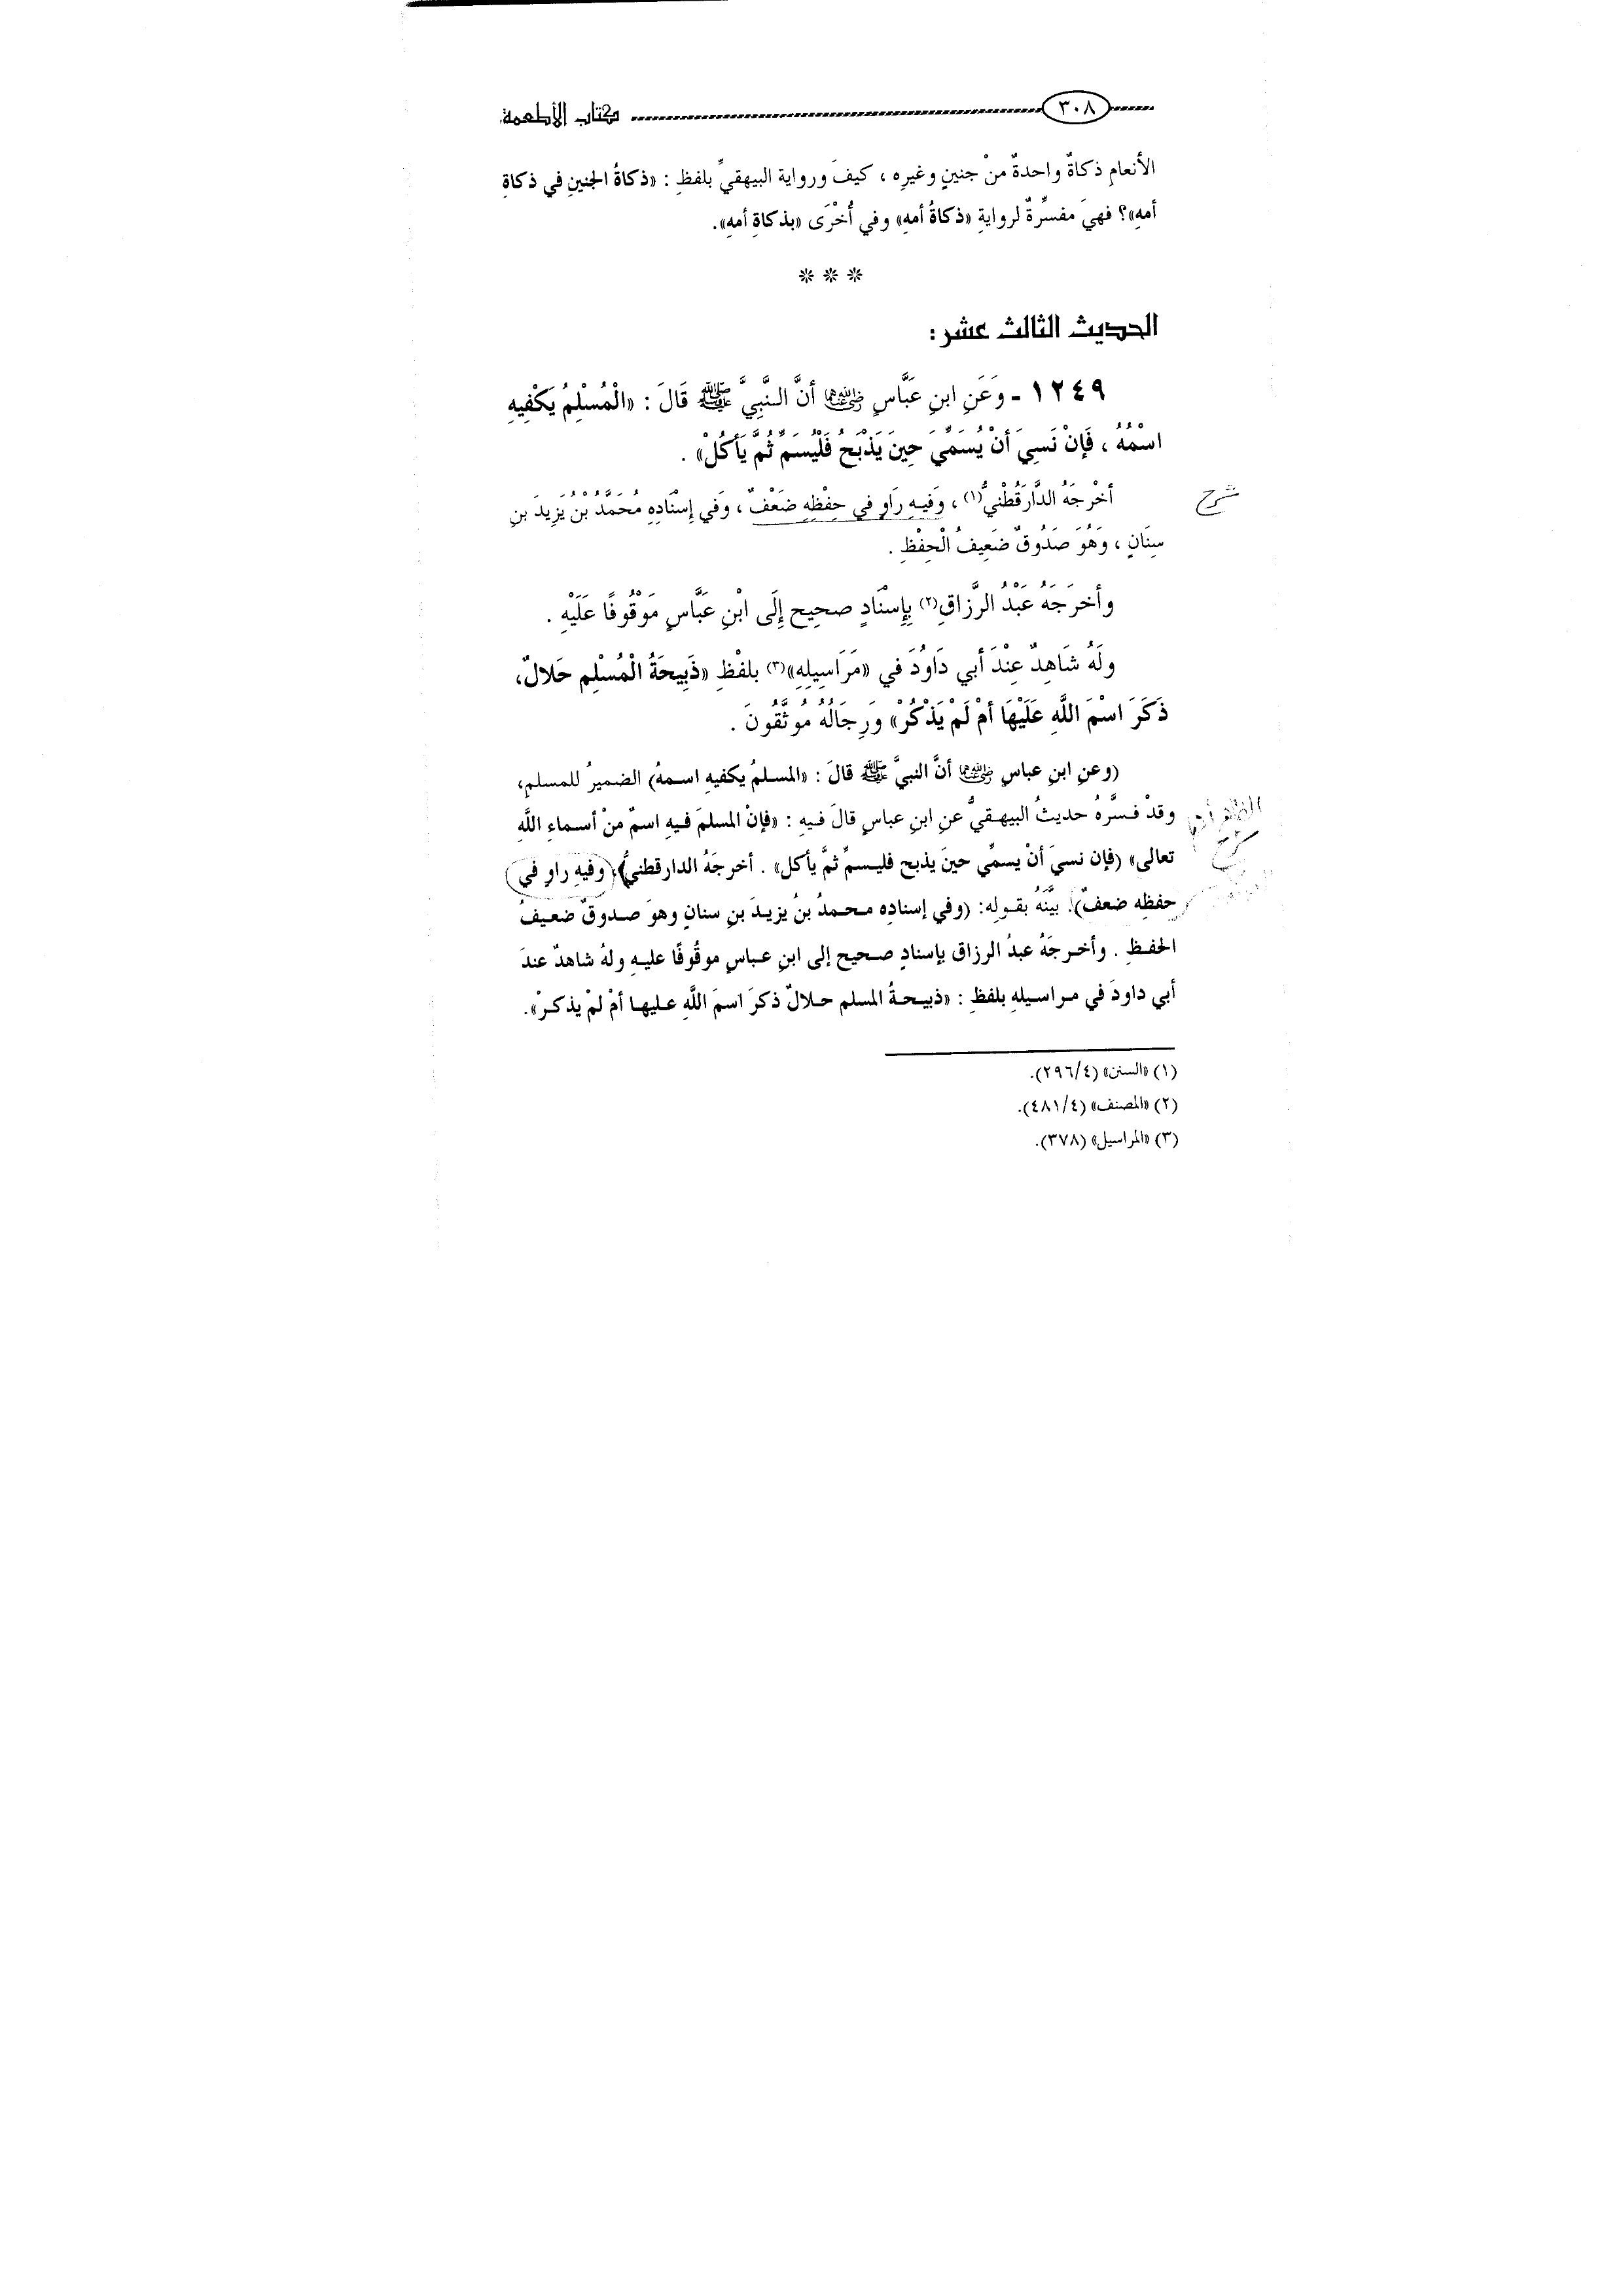 ٣٠٨ كتاب الأطعمة
الأنعامِ ذكاةٌ واحدةٌ منْ جنينٍ وغيرِه ، كيفَ ورواية البيهقيِّ بلفظِ : «ذكاةُ الجنينِ في ذكاةِ
أمهِ»؟ فهيَ مفسِّرةٌ لروايةِ «ذكاةُ أمهِ» وفي أُخْرَى «بذكاةِ أمهِ».
* * *
الحديث الثالث عشر :
١٢٤٩ - وَعَنِ ابنِ عَبَّاسٍ ﵄ أنَّ النَّبِيَّ ﷺ قَالَ : «الْمُسْلِمُ يَكْفِيهِ
اسْمُهُ ، فَإِنْ نَسِيَ أنْ يُسَمِّيَ حِينَ يَذْبَحُ فَلْيُسَمِّ ثُمَّ يَأكُلْ» .
أخْرجَهُ الدَّارَقُطْنيُّ(١) ، وَفيهِ رَاوٍ في حِفْظِهِ ضَعْفٌ ، وَفي إِسْنَادِهِ مُحَمَّدُ بْنُ يَزِيدَ بنِ
سِنَانٍ ، وَهُوَ صَدُوقٌ ضَعِيفُ الْحِفْظِ .
شرح
وأخرَجَهُ عَبْدُ الرَّزاقِ(٢) بِإِسْنَادٍ صحِيح إِلَى ابْنِ عَبَّاسٍ مَوْقُوفًا عَلَيْهِ .
ولَهُ شَاهِدٌ عِنْدَ أبي دَاوُدَ في «مَرَاسِيلِهِ»(٣) بلفْظِ «ذَبِيحَةُ الْمُسْلِمِ حَلالٌ،
ذَكَرَ اسْمَ اللَّهِ عَلَيْهَا أمْ لَمْ يَذْكُرْ» وَرِجَالُهُ مُوثَّقُونَ .
(وعنِ ابنِ عباسٍ ﵄ أنَّ النبيَّ ﷺ قالَ : «المسلمُ يكفيهِ اسمهُ) الضميرُ للمسلمِ،
وقدْ فسَّرهُ حديثُ البيهقيُّ عنِ ابنِ عباسٍ قالَ فيهِ : «فإنْ المسلمَ فيهِ اسمٌ منْ أسماءِ اللَّهِ
تعالى» (فإن نسيَ أنْ يسمِّي حينَ يذبح فليسمِّ ثمَّ يأكل» . أخرجَهُ الدارقطنيُّ)، (وفيهِ راوٍ في
حفظِه ضعفٌ) بيَّنَهُ بقولِه: (وفي إسنادِه محمدُ بنُ يزيدَ بنِ سنانٍ وهوَ صدوقٌ ضعيفُ
الحفظِ . وأخرجَهُ عبدُ الرزاق بإسنادٍ صحيح إلى ابنِ عباسٍ موقُوفًا عليهِ ولهُ شاهدٌ عندَ
أبي داودَ في مراسيلهِ بلفظِ : «ذبيحةُ المسلم حلالٌ ذكرَ اسمَ اللَّهِ عليها أمْ لمْ يذكرْ».
(١) «السنن» (٢٩٦/٤).
(٢) «المصنف» (٤٨١/٤).
(٣) «المراسيل» (٣٧٨).